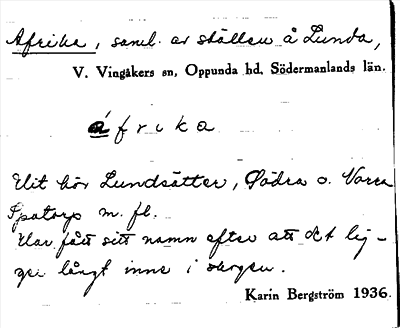 Afrika, saml. av ställen å Lunda,
V. Vingåkers sn, Oppunda hd, Södermanlands län.
áfrika
Dit hör Lundsätter, Södra o. Norra
Spatorp m. fl.
Har fått sitt namn efter att det lig-
ger långt inne i skogen.
Karin Bergström 1936.